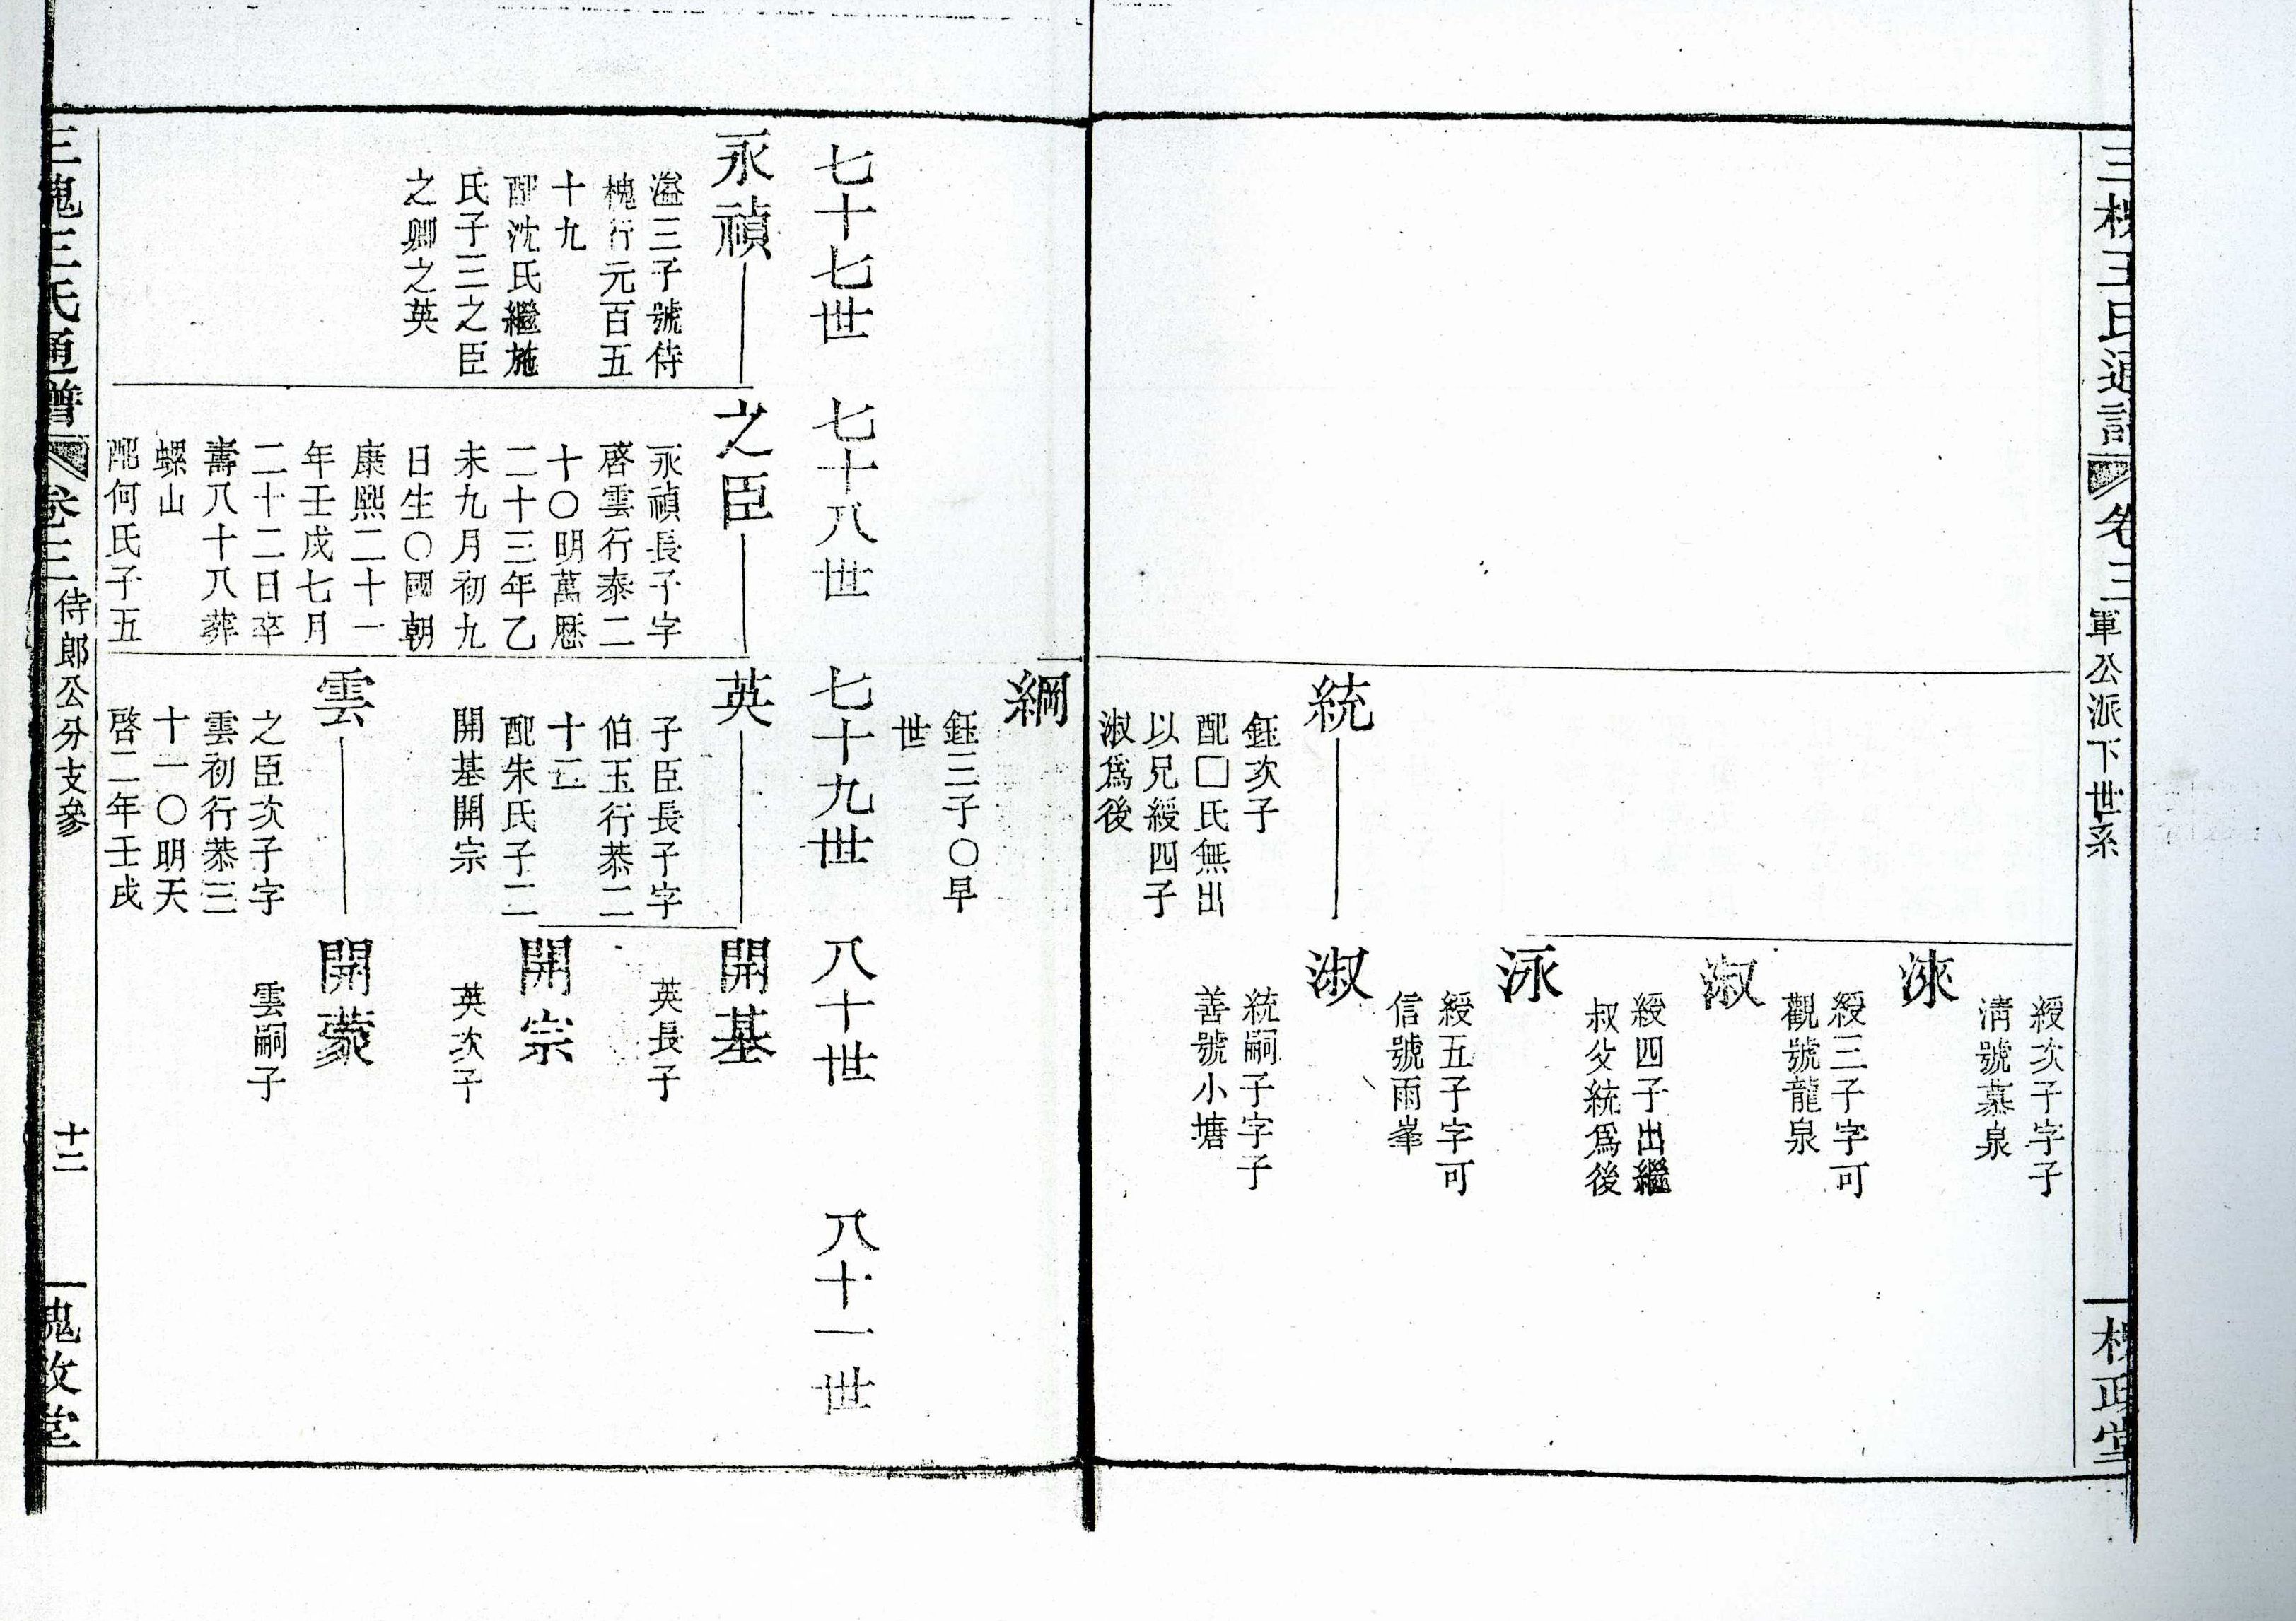 三槐王氏通譜
卷三
軍公派下世系
槐政堂
綬次子字子
清號慕泉
淶
綬三子字可
觀號龍泉
淑
綬四子出繼
叔父統爲後
泳
綬五子字可
信號雨峯
統
鈺次子
配□氏無出
以兄綬四子
淑爲後
淑
統嗣子字子
善號小塘
綱
鈺三子○早
世
七十七世
七十八世
七十九世
八十世
八十一世
永禎
溢三子號侍
槐行元百五
十九
配沈氏繼施
氏子三之臣
之卿之英
之臣
永禎長子字
啓雲行泰二
十○明萬厯
二十三年乙
未九月初九
日生○國朝
康熙二十一
年壬戌七月
二十二日卒
壽八十八葬
螺山
配何氏子五
英
子臣長子字
伯玉行恭二
十二
配朱氏子二
開基開宗
開基
英長子
開宗
英次子
雲
之臣次子字
雲初行恭三
十一○明天
啓二年壬戌
開蒙
雲嗣子
三槐王氏通譜
卷三
侍郎公分支參
十二
槐政堂